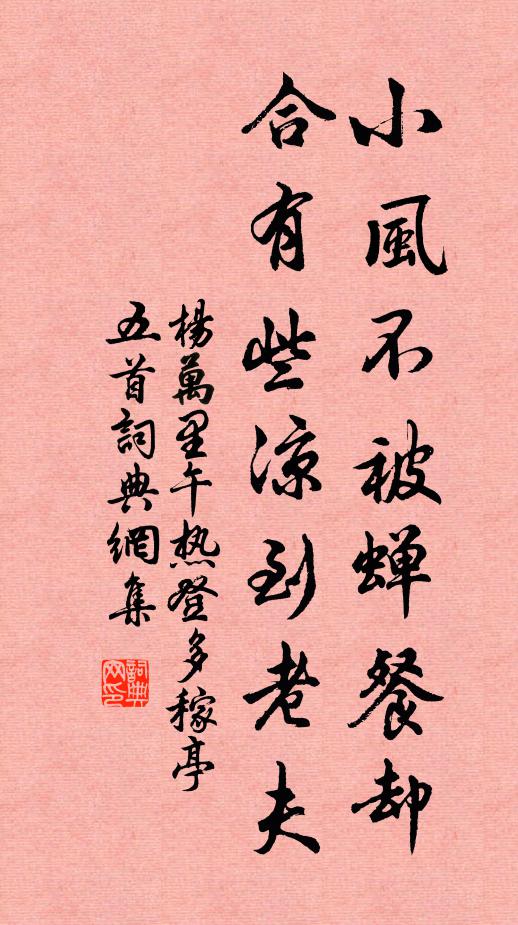 小風不被蝉餐却
合有些涼到老夫
楊萬里午热登多稼亭
五首詞典網集
詞典
网印